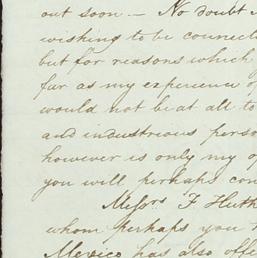 out soon — No doubt
wishing to be connect
but for reasons which
far as my experience of
would not be at all to
and industrious perso
however is only my o
you will perhaps con
Messrs F Huth
whom perhaps you
Mexico has also offe